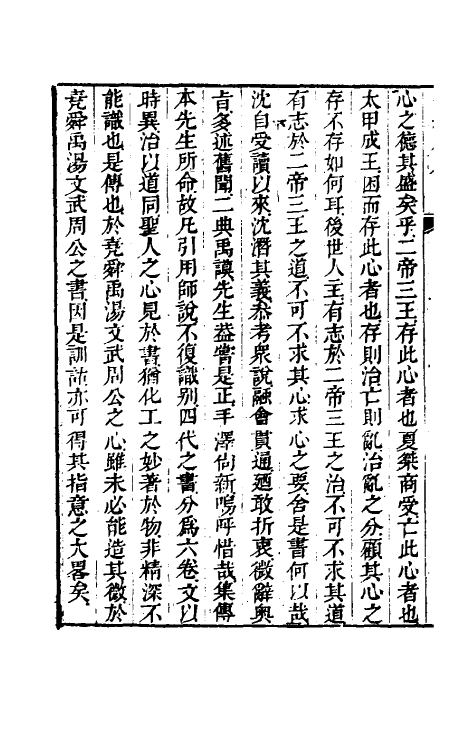 心之德其盛矣乎二帝三王存此心者也夏桀商受亡此心者也
太甲成王困而存此心者也存則治亡則亂治亂之分顧其心之
存不存如何耳後世人主有志於二帝三王之治不可不求其道
有志於二帝三王之道不可不求其心求心之要舍是書何以哉
沈自受讀以來沈潛其義叅考衆說融會貫通廼敢折衷微辭奥
旨多述舊聞二典禹謨先生葢嘗是正手澤尙新嗚呼惜哉集傳
本先生所命故凡引用師說不復識别四代之書分爲六卷文以
時異治以道同聖人之心見於書猶化工之妙著於物非精深不
能識也是傳也於堯舜禹湯文武周公之心雖未必能造其微於
堯舜禹湯文武周公之書因是訓詁亦可得其指意之大畧矣